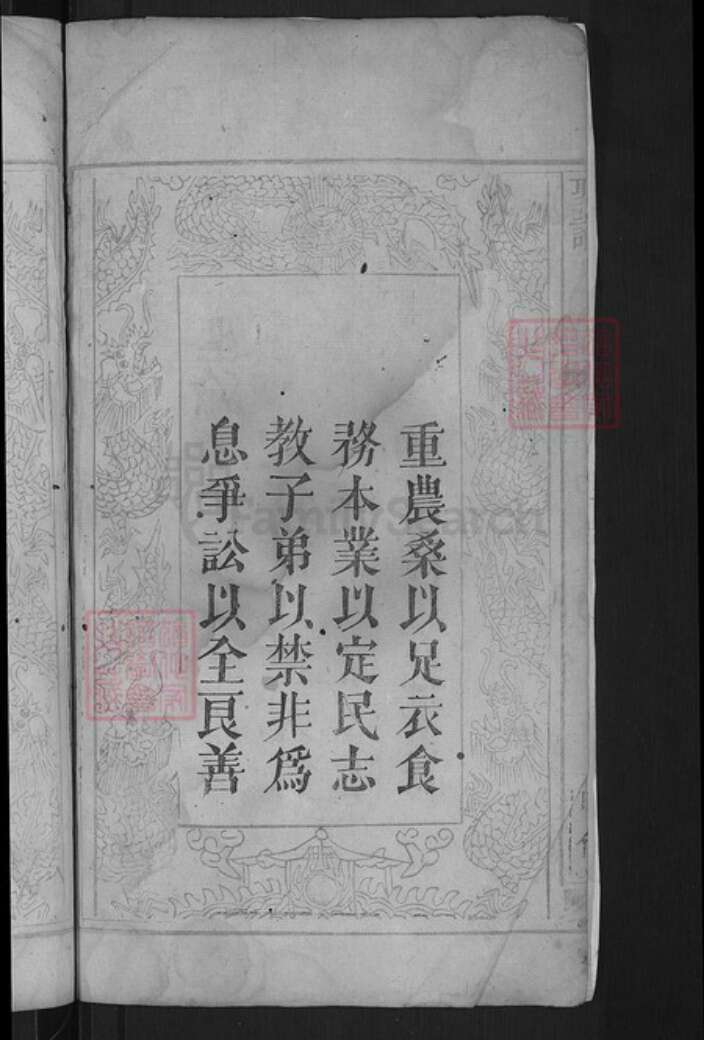 重農桑以足衣食
務本業以定民志
教子弟以禁非爲
息爭訟以全良善
FamilySearch